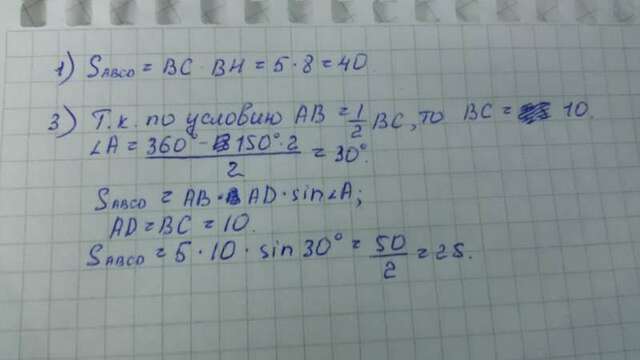 1) S ABCD = BC · BH = 5 · 8 = 40.
3) Т.к. по условию AB = 1/2 BC, то BC = 10.
∠A = (360° - 150° · 2)/2 = 30°.
S ABCD = AB · AD · sin∠A;
AD = BC = 10.
S ABCD = 5 · 10 · sin 30° = 50/2 = 25.